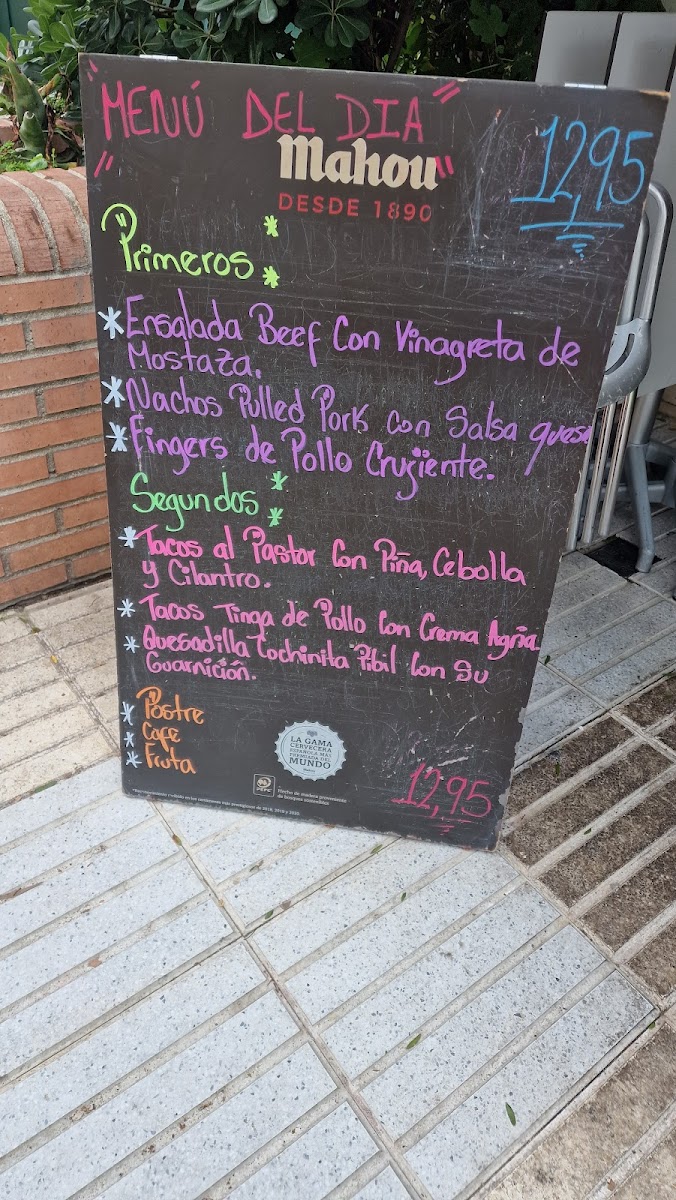 "MENÚ DEL DIA"
mahou
DESDE 1890
12,95
Primeros
* Ensalada Beef Con Vinagreta de
Mostaza.
* Nachos Pulled Pork con Salsa queso
* Fingers de Pollo Crujiente.
Segundos
* Tacos al Pastor Con Piña, Cebolla
y Cilantro.
* Tacos Tinga de Pollo Con Crema Agria
* Quesadilla Cochinita Pibil Con Su
Guarnición.
* Postre
* Cafe
* Fruta
LA GAMA
CERVECERA
ESPAÑOLA MÁS
PREMIADA DEL
MUNDO
PEFC
Hecho de madera proveniente
de bosques sostenibles
12,95